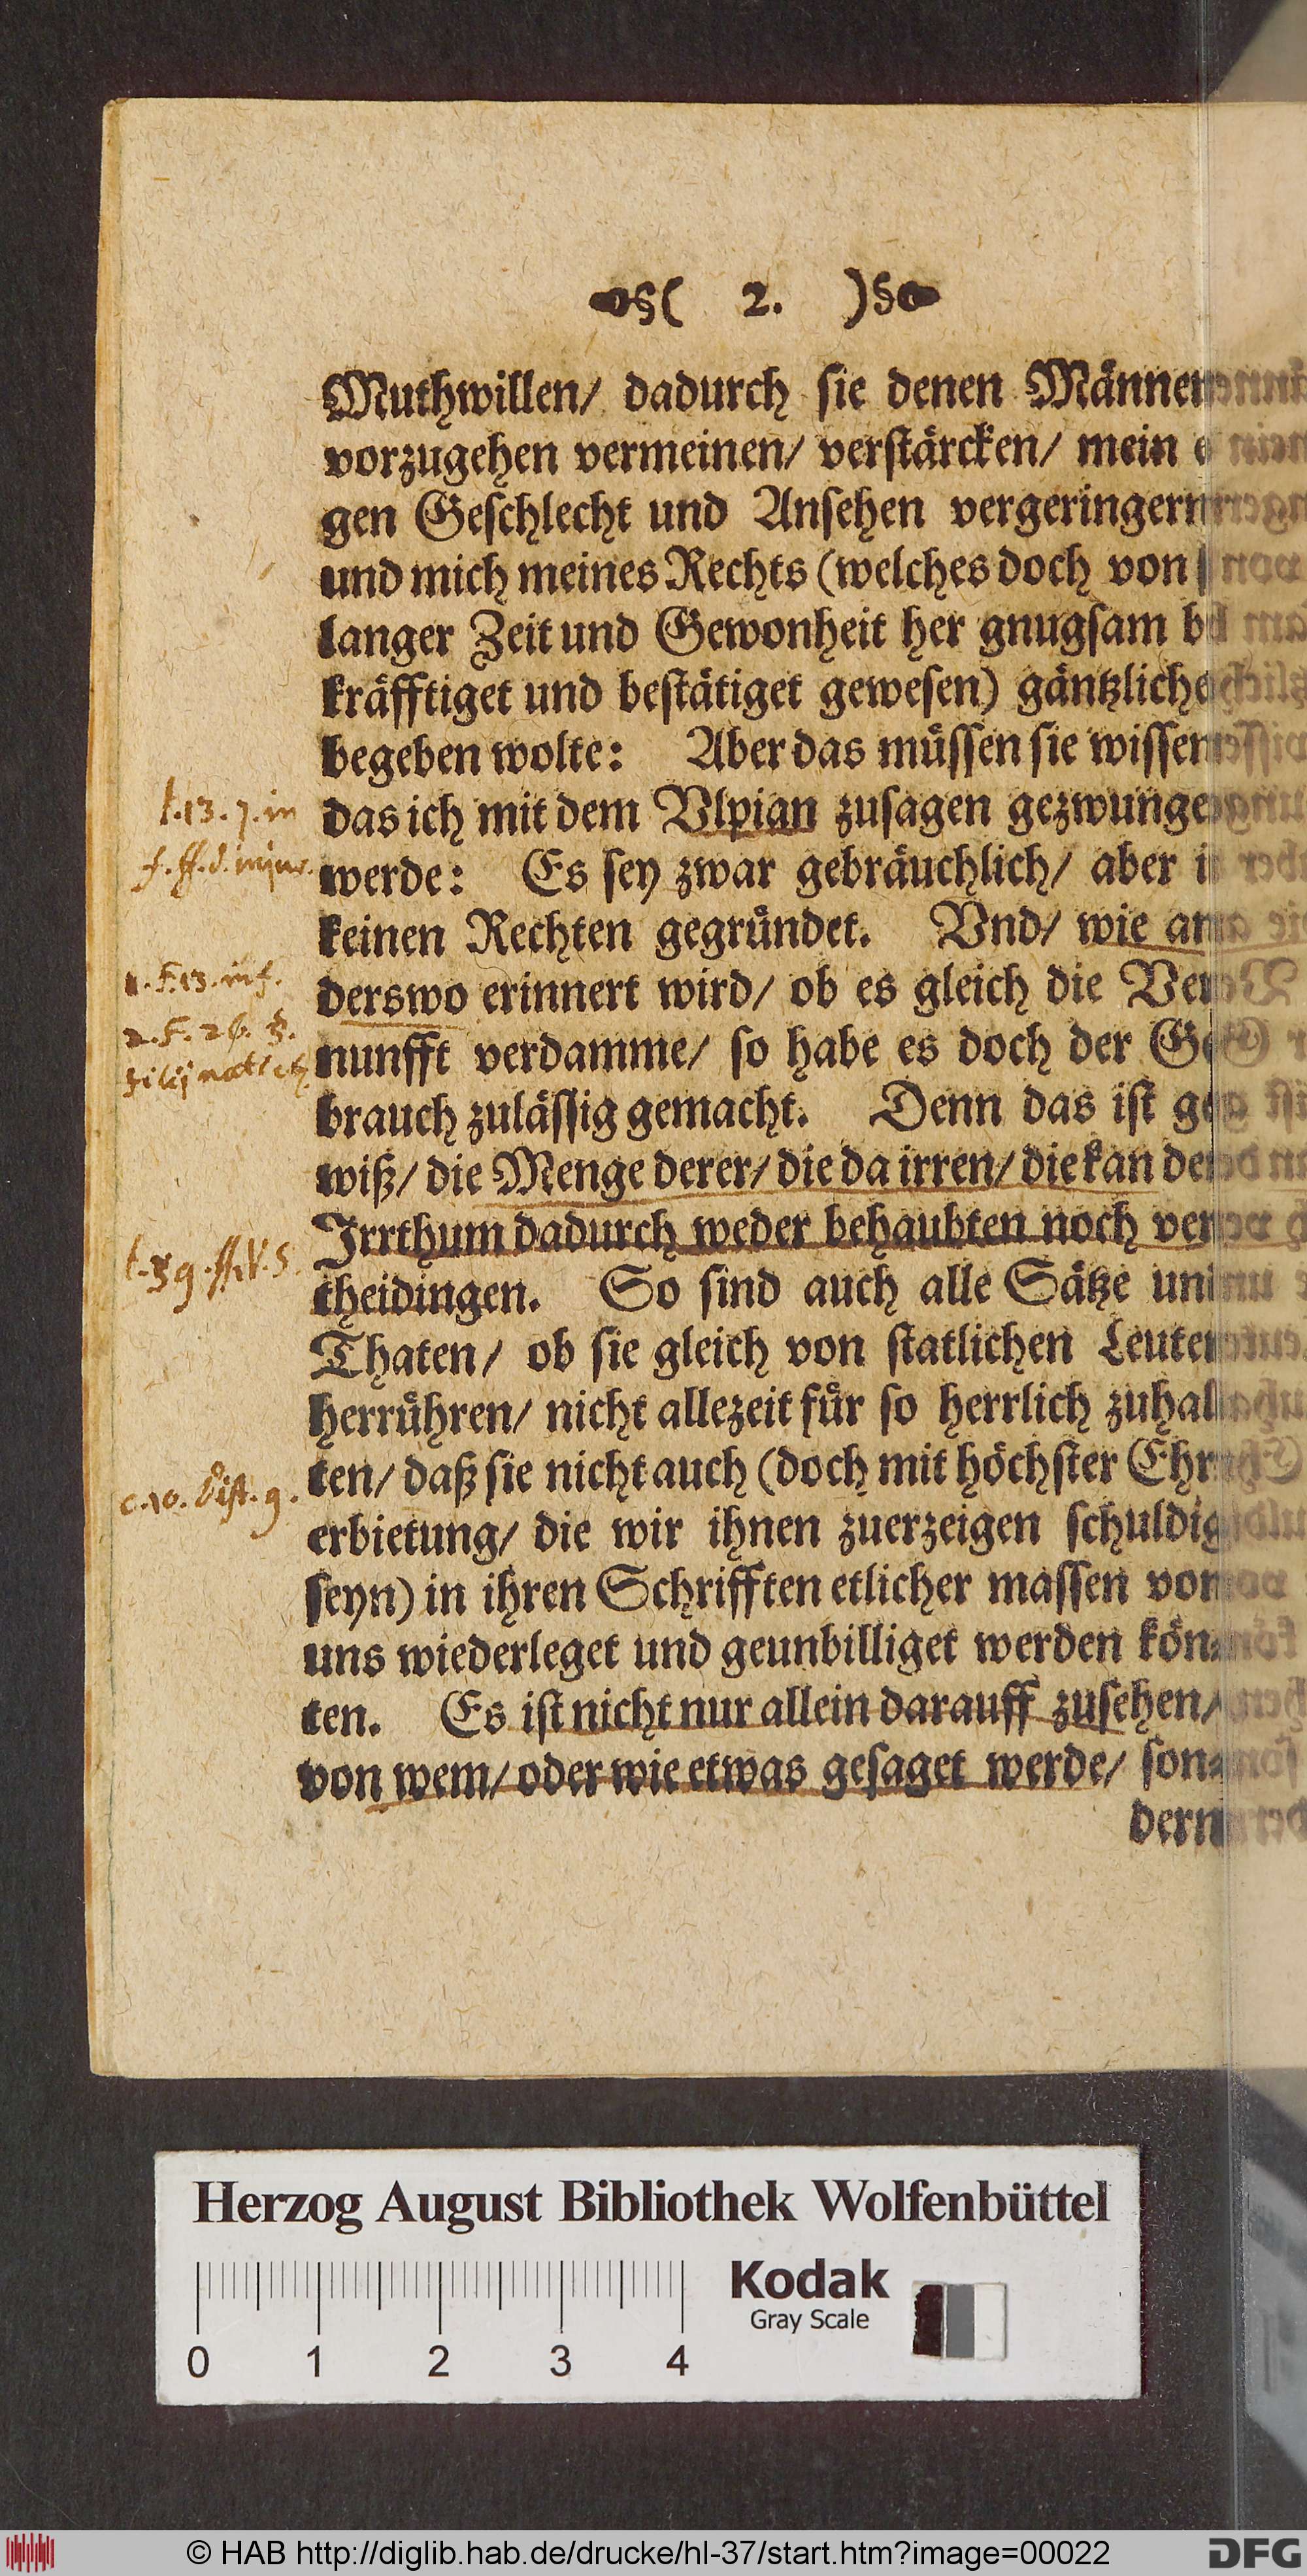 §( 2. )§
Muthwillen/ dadurch sie denen Männer
vorzugehen vermeinen/ verstärcken/ mein
gen Geschlecht und Ansehen vergeringern
und mich meines Rechts (welches doch von
langer Zeit und Gewonheit her gnugsam
kräfftiget und bestätiget gewesen) gäntzliche
begeben wolte: Aber das müssen sie wissen
das ich mit dem Vlpian zusagen gezwunge
werde: Es sey zwar gebräuchlich/ aber
keinen Rechten gegründet. Vnd/ wie an
derswo erinnert wird/ ob es gleich die Ver
nunfft verdamme/ so habe es doch der Ge
brauch zulässig gemacht. Denn das ist ge
wiß/ die Menge derer/ die da irren/ die kan den
Irrthum dadurch weder behaubten noch ver
theidingen. So sind auch alle Sätze und
Thaten/ ob sie gleich von statlichen Leuten
herrühren/ nicht allezeit für so herrlich zuhal
ten/ daß sie nicht auch (doch mit höchster Ehr
erbietung/ die wir ihnen zuerzeigen schuldig
seyn) in ihren Schrifften etlicher massen von
uns wiederleget und geunbilliget werden kön⸗
ten. Es ist nicht nur allein darauff zusehen/
von wem/ oder wie etwas gesaget werde/ son⸗
dern
l.13.7.in
f. ff. d. minor.
2. F. 26. §.
c.10. Dist. 9.
Herzog August Bibliothek Wolfenbüttel
Kodak
Gray Scale
0 1 2 3 4
© HAB http://diglib.hab.de/drucke/hl-37/start.htm?image=00022
DFG